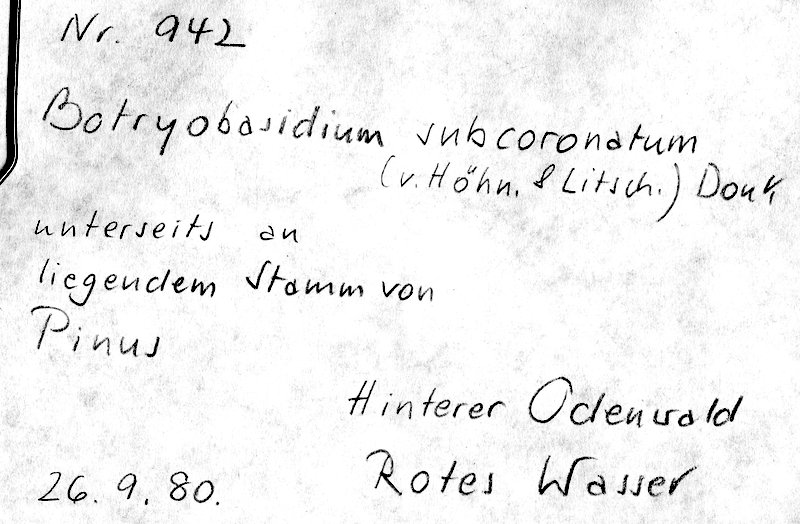 Nr. 942
Botryobasidium subcoronatum
(v. Höhn. & Litsch.) Donk
unterseits an
liegendem Stamm von
Pinus
Hinterer Odenwald
Rotes Wasser
26. 9. 80.